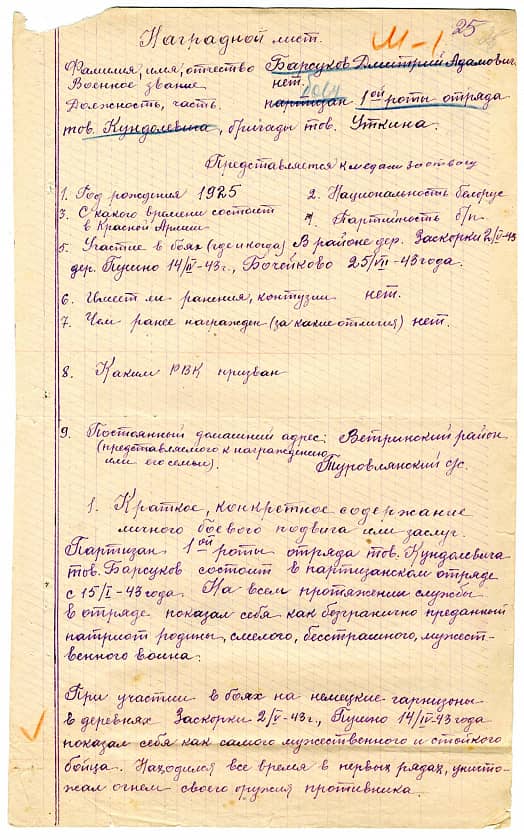 25
М-1
Наградной лист.
Фамилия, имя, отчество Барсуков Дмитрий Адамович
Военное звание нет.
Должность, часть. партизан 1ой роты отряда
тов. Кундолевича, бригады тов. Уткина.
Представляется к медали за отвагу
1. Год рождения 1925 2. Национальность белорус
3. С какого времени состоит
в Красной Армии 4. Партийность б/п.
5. Участие в боях (где и когда) В районе дер. Заскорки 2/V-43
дер. Пушно 14/IV-43г., Бочейково 25/VII-43 года.
6. Имеет ли ранения, контузии нет.
7. Чем ранее награжден (за какие отличия) нет.
8. Каким РВК призван
9. Постоянный домашний адрес: Ветринский район
(представляемого к награждению
или его семьи). Туровлянский с/с.
1. Краткое, конкретное содержание
личного боевого подвига или заслуг.
Партизан 1ой роты отряда тов. Кундолевича
тов. Барсуков состоит в партизанском отряде
с 15/I-43 года. На всем протяжении службы
в отряде показал себя как безгранично преданный
патриот родины, смелого, бесстрашного, мужест-
венного воина.
При участии в боях на немецкие гарнизоны
в деревнях Заскорки 2/V-43г., Пушно 14/IV-43 года
показал себя как самого мужественного и стойкого
бойца. Находился все время в первых рядах, уничто-
жал огнем своего оружия противника.